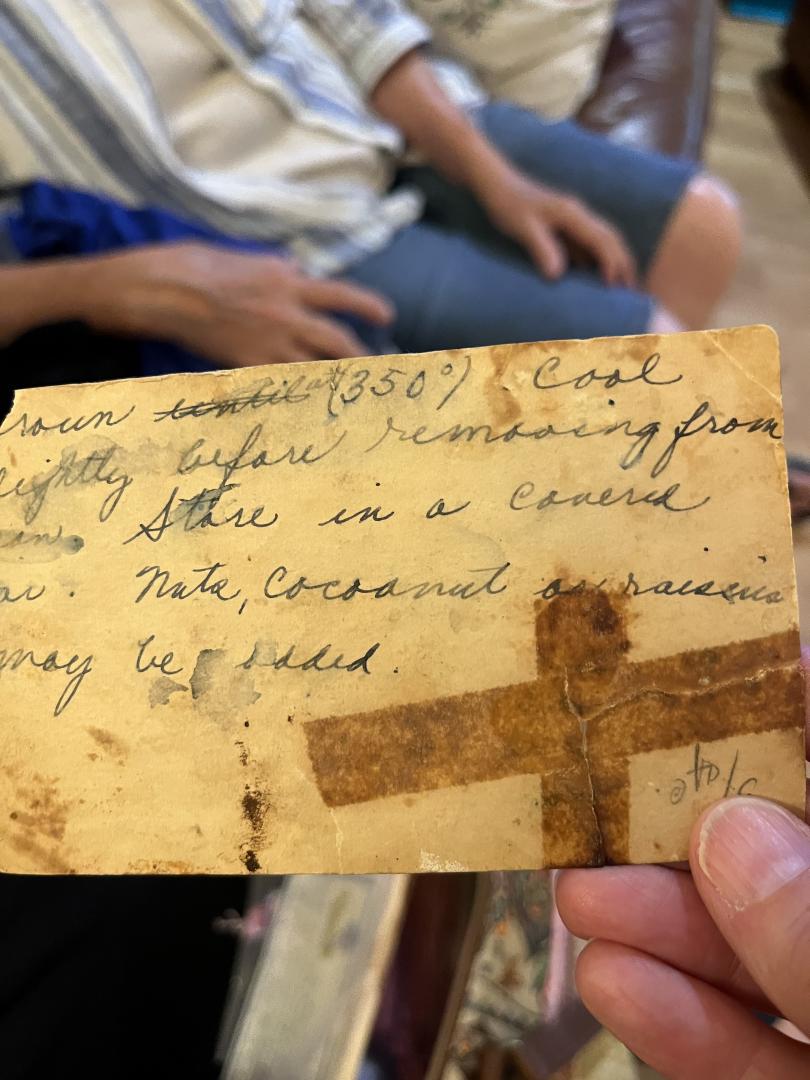 rown until at (350°). Cool
lightly before removing from
an. Store in a covered
ar. Nuts, Cocoanut or raisins
may be added.